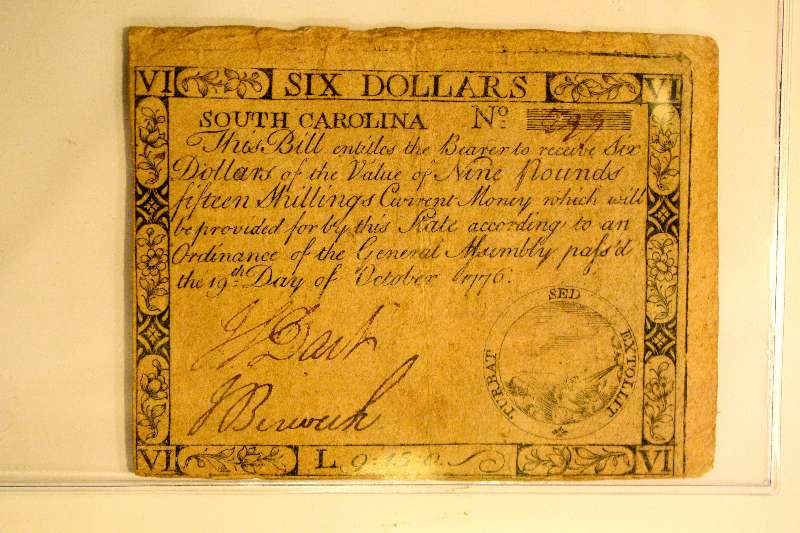 VI SIX DOLLARS VI
SOUTH CAROLINA No.
This Bill entitles the Bearer to receive Six
Dollars of the Value of Nine Pounds
fifteen Shillings Current Money which will
be provided for by this State according to an
Ordinance of the General Assembly pass'd
the 19th Day of October 1776.
SED
TURBAT EXTOLLIT
VI L 9.15.0. VI